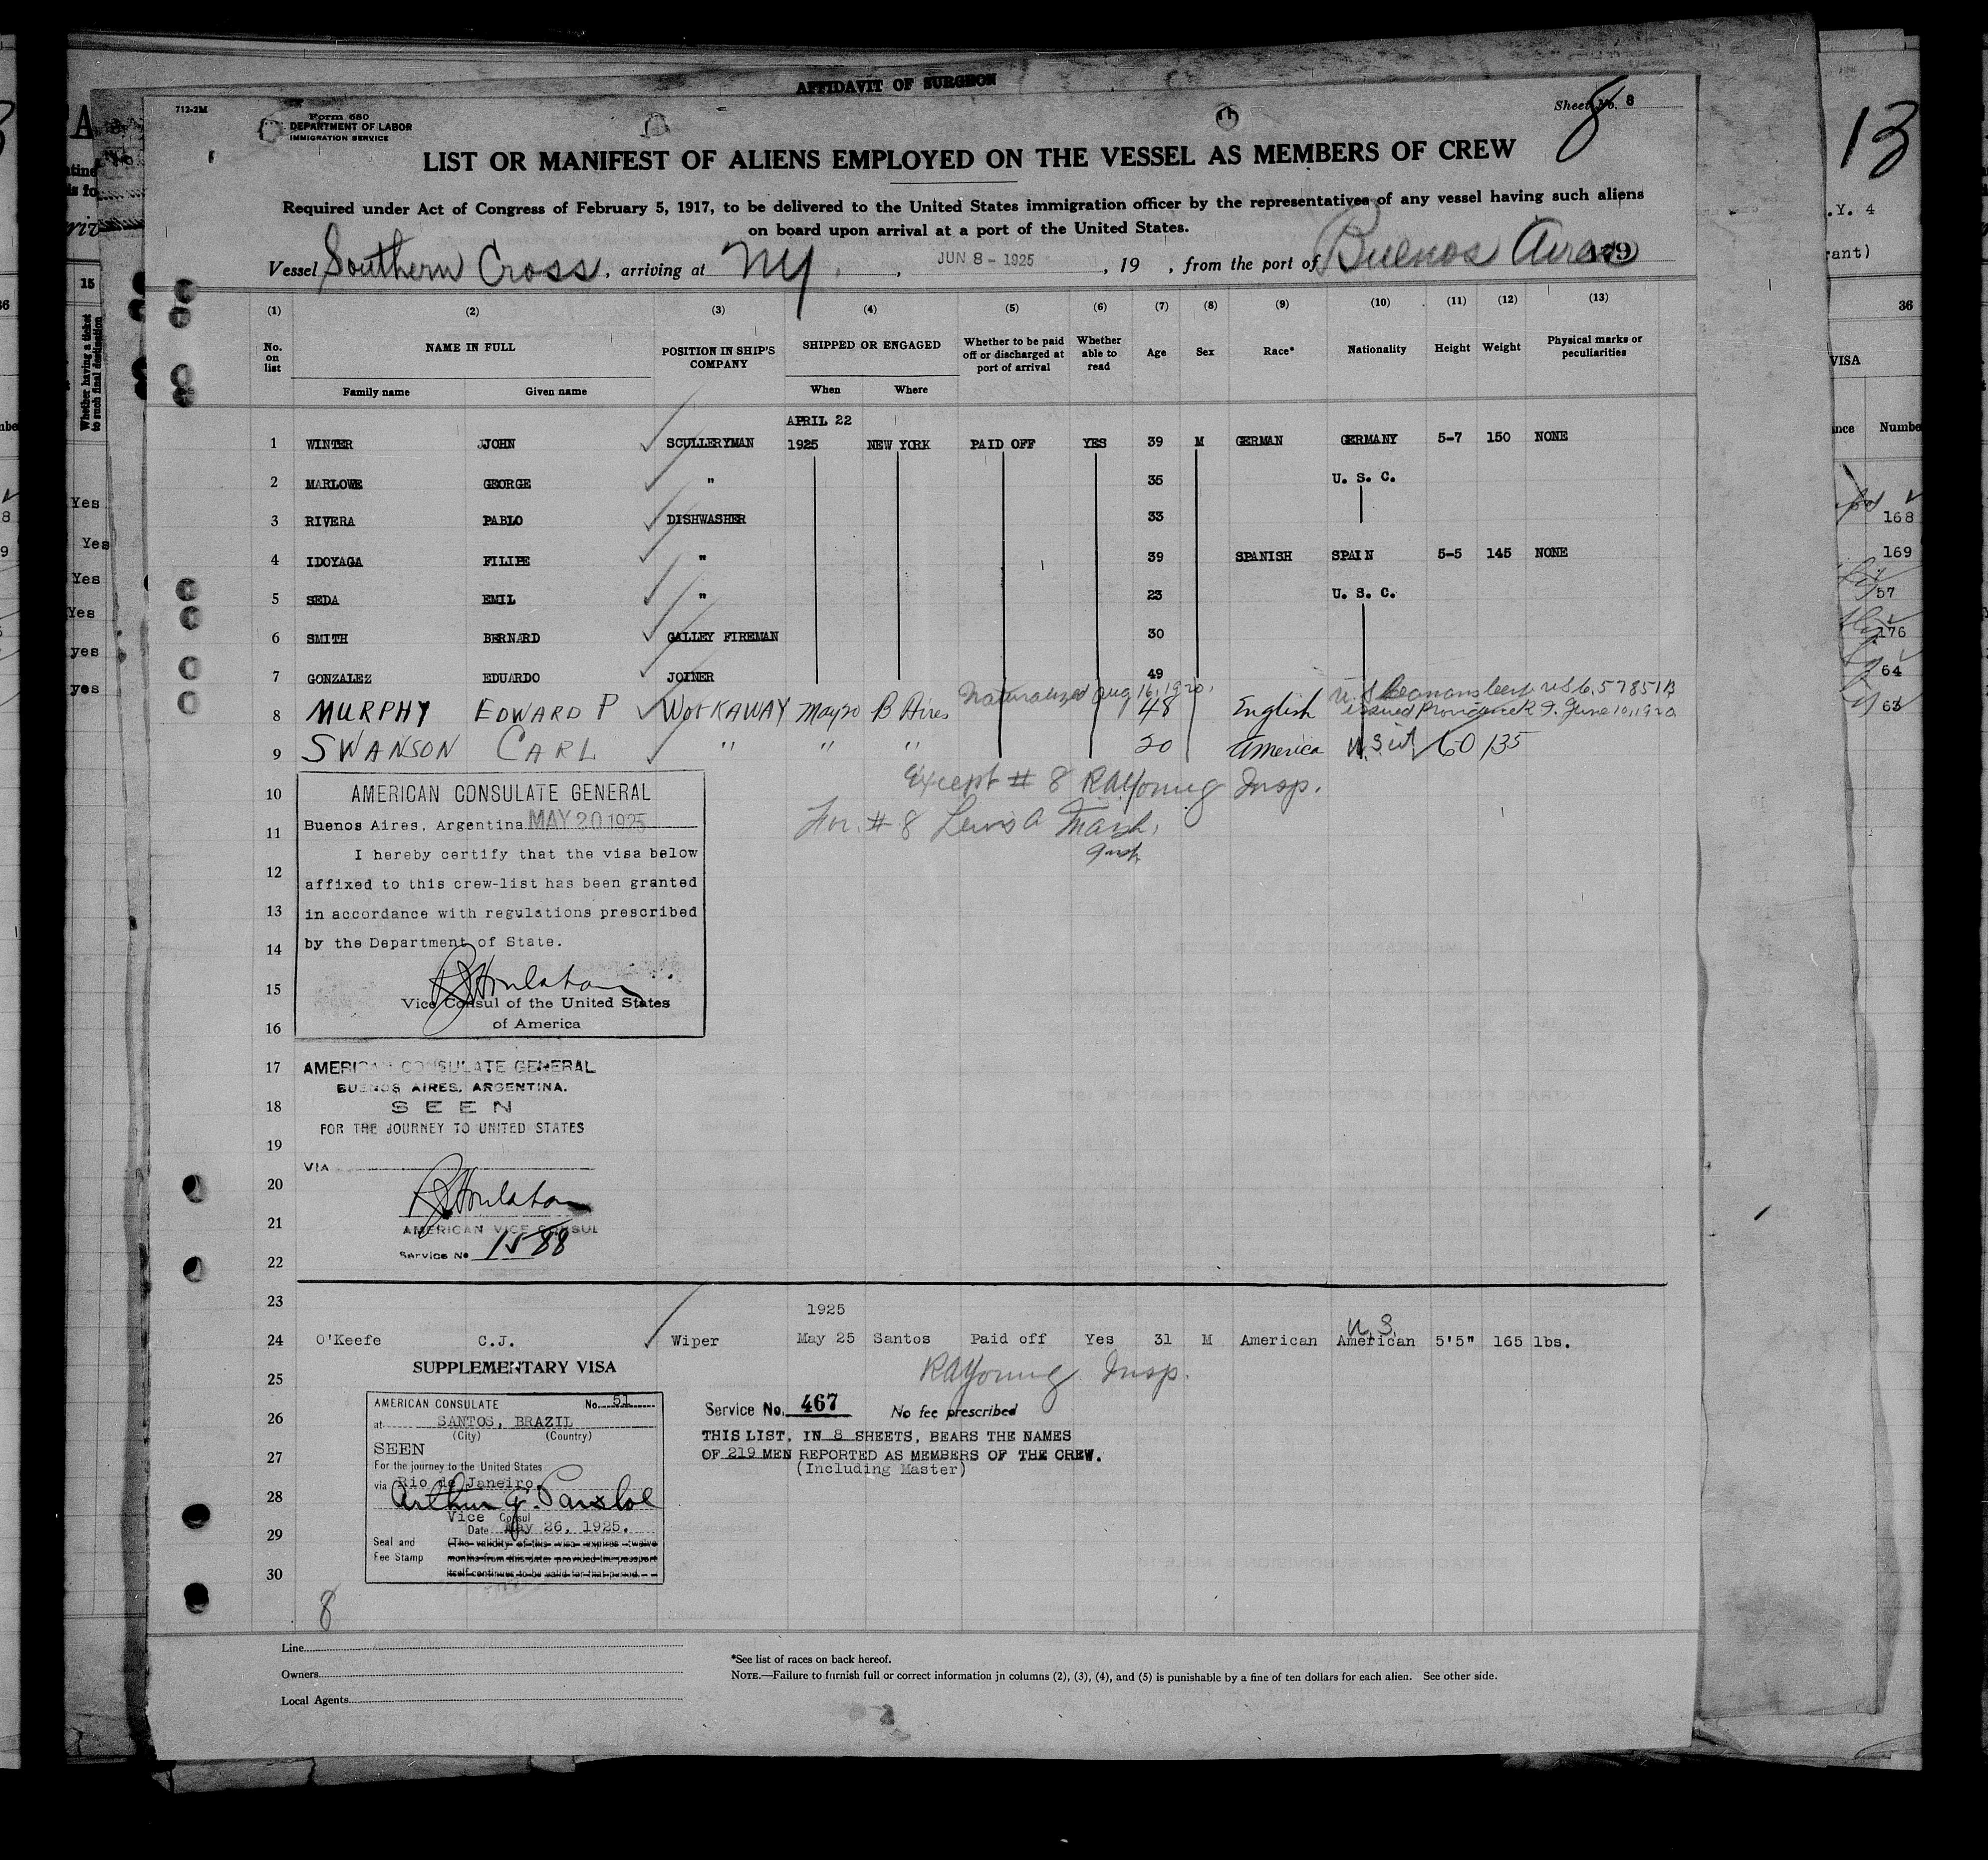 AFFIDAVIT OF SURGEON
712-2M
Form 680
DEPARTMENT OF LABOR
IMMIGRATION SERVICE
Sheet No. 8
8
13
LIST OR MANIFEST OF ALIENS EMPLOYED ON THE VESSEL AS MEMBERS OF CREW
Required under Act of Congress of February 5, 1917, to be delivered to the United States immigration officer by the representatives of any vessel having such aliens
on board upon arrival at a port of the United States.
Vessel Southern Cross, arriving at NY, JUN 8 - 1925, 19 , from the port of Buenos Aires
(1) (2) (3) (4) (5) (6) (7) (8) (9) (10) (11) (12) (13)
No. on list NAME IN FULL POSITION IN SHIP'S COMPANY SHIPPED OR ENGAGED Whether to be paid off or discharged at port of arrival Whether able to read Age Sex Race* Nationality Height Weight Physical marks or peculiarities
Family name Given name When Where
APRIL 22
1 WINTER JOHN SCULLERYMAN 1925 NEW YORK PAID OFF YES 39 M GERMAN GERMANY 5-7 150 NONE
2 MARLOWE GEORGE " 35 U. S. C.
3 RIVERA PABLO DISHWASHER 33
4 IDOYAGA FILIPE " 39 SPANISH SPAIN 5-5 145 NONE
5 SEDA EMIL " 23 U. S. C.
6 SMITH BERNARD GALLEY FIREMAN 30
7 GONZALEZ EDUARDO JOINER 49
Naturalized Aug 16, 1920.
8 MURPHY EDWARD P WORKAWAY May 20 B Aires 48 English issued Providence R.I. June 10, 1920
9 SWANSON CARL " " " 20 America 60 135
10 Except # 8 RAYoung Insp.
AMERICAN CONSULATE GENERAL
11 Buenos Aires, Argentina MAY 20 1925
For # 8 Lewis A
I hereby certify that the visa below
12 affixed to this crew-list has been granted
13 in accordance with regulations prescribed
14 by the Department of State.
15 Vice Consul of the United States
16 of America
17 AMERICAN CONSULATE GENERAL
BUENOS AIRES, ARGENTINA.
18 SEEN
FOR THE JOURNEY TO UNITED STATES
19
VIA
20
21 AMERICAN VICE CONSUL
Service No 1588
22
23
1925
24 O'Keefe C.J. Wiper May 25 Santos Paid off Yes 31 M American U.S. American 5'5" 165 lbs.
SUPPLEMENTARY VISA
25 RAYoung Insp.
AMERICAN CONSULATE No. 51
at SANTOS, BRAZIL
(City) (Country)
SEEN
For the journey to the United States
via Rio de Janeiro
Vice Consul
Date May 26, 1925.
Seal and Fee Stamp
(The validity of this visa expires twelve
months from this date, provided the passport
itself continues to be valid for that period.
26 Service No. 467 No fee prescribed
THIS LIST, IN 8 SHEETS, BEARS THE NAMES
27 OF 219 MEN REPORTED AS MEMBERS OF THE CREW.
(Including Master)
28
29
30
8
Line
Owners
Local Agents
*See list of races on back hereof.
NOTE.—Failure to furnish full or correct information in columns (2), (3), (4), and (5) is punishable by a fine of ten dollars for each alien. See other side.
15
Whether having a ticket
to such final destination
Yes
Yes
Yes
Yes
yes
yes
36
VISA
Number
168
169
57
176
64
63